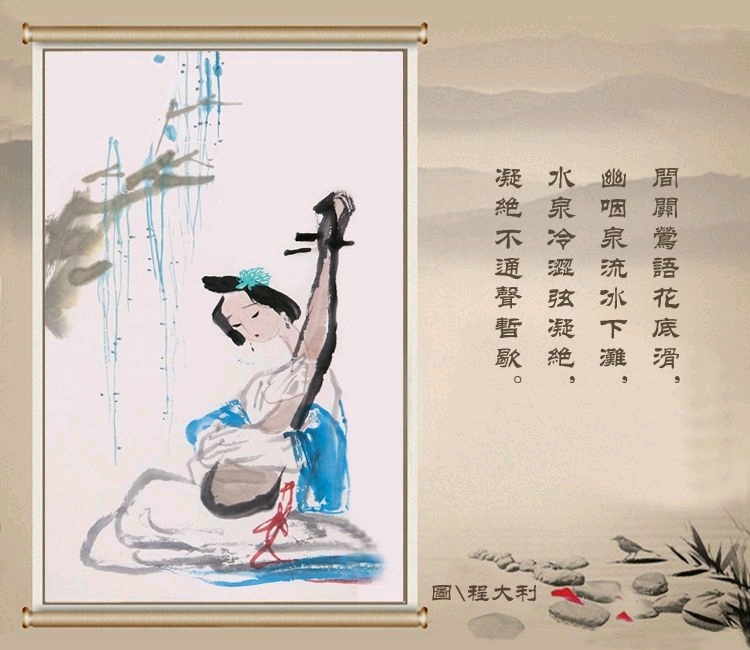 間關鶯語花底滑，
幽咽泉流冰下灘，
水泉冷澀弦凝絶，
凝絶不通聲暫歇。
圖\程大利